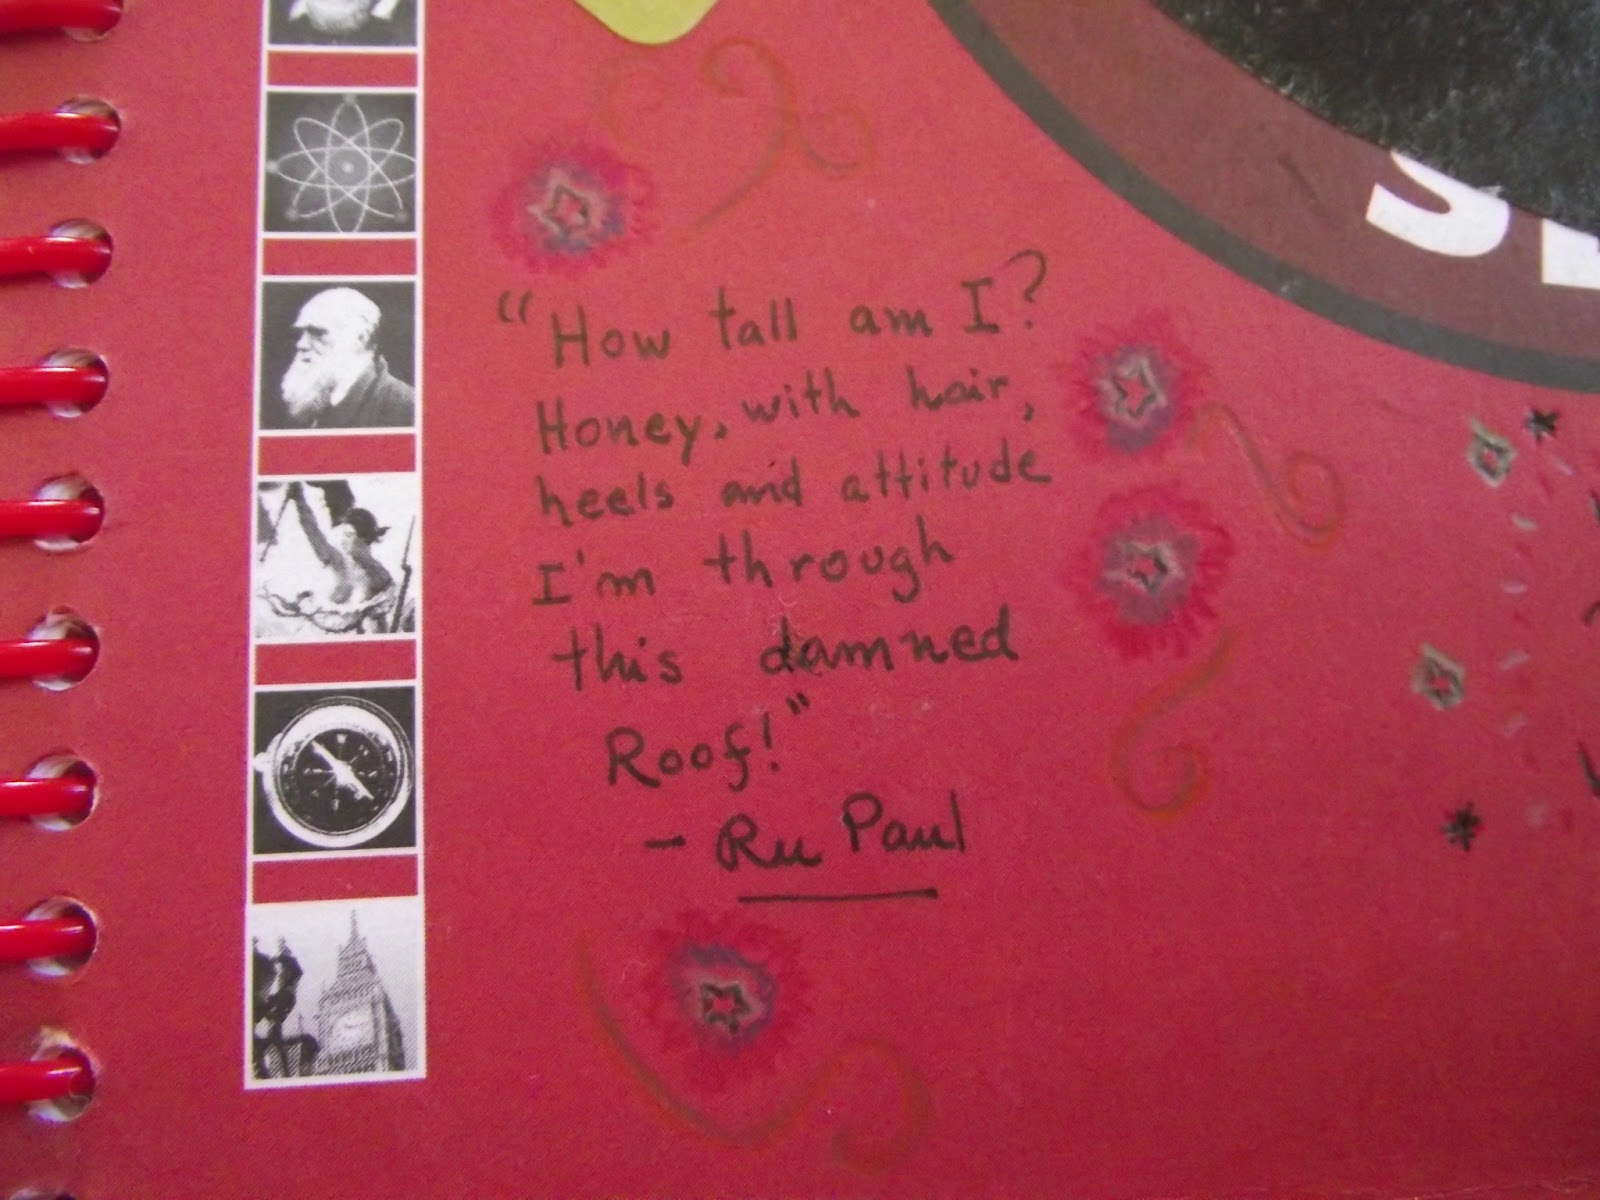 "How tall am I?
Honey, with hair,
heels and attitude
I'm through
this damned
Roof!"
- Ru Paul